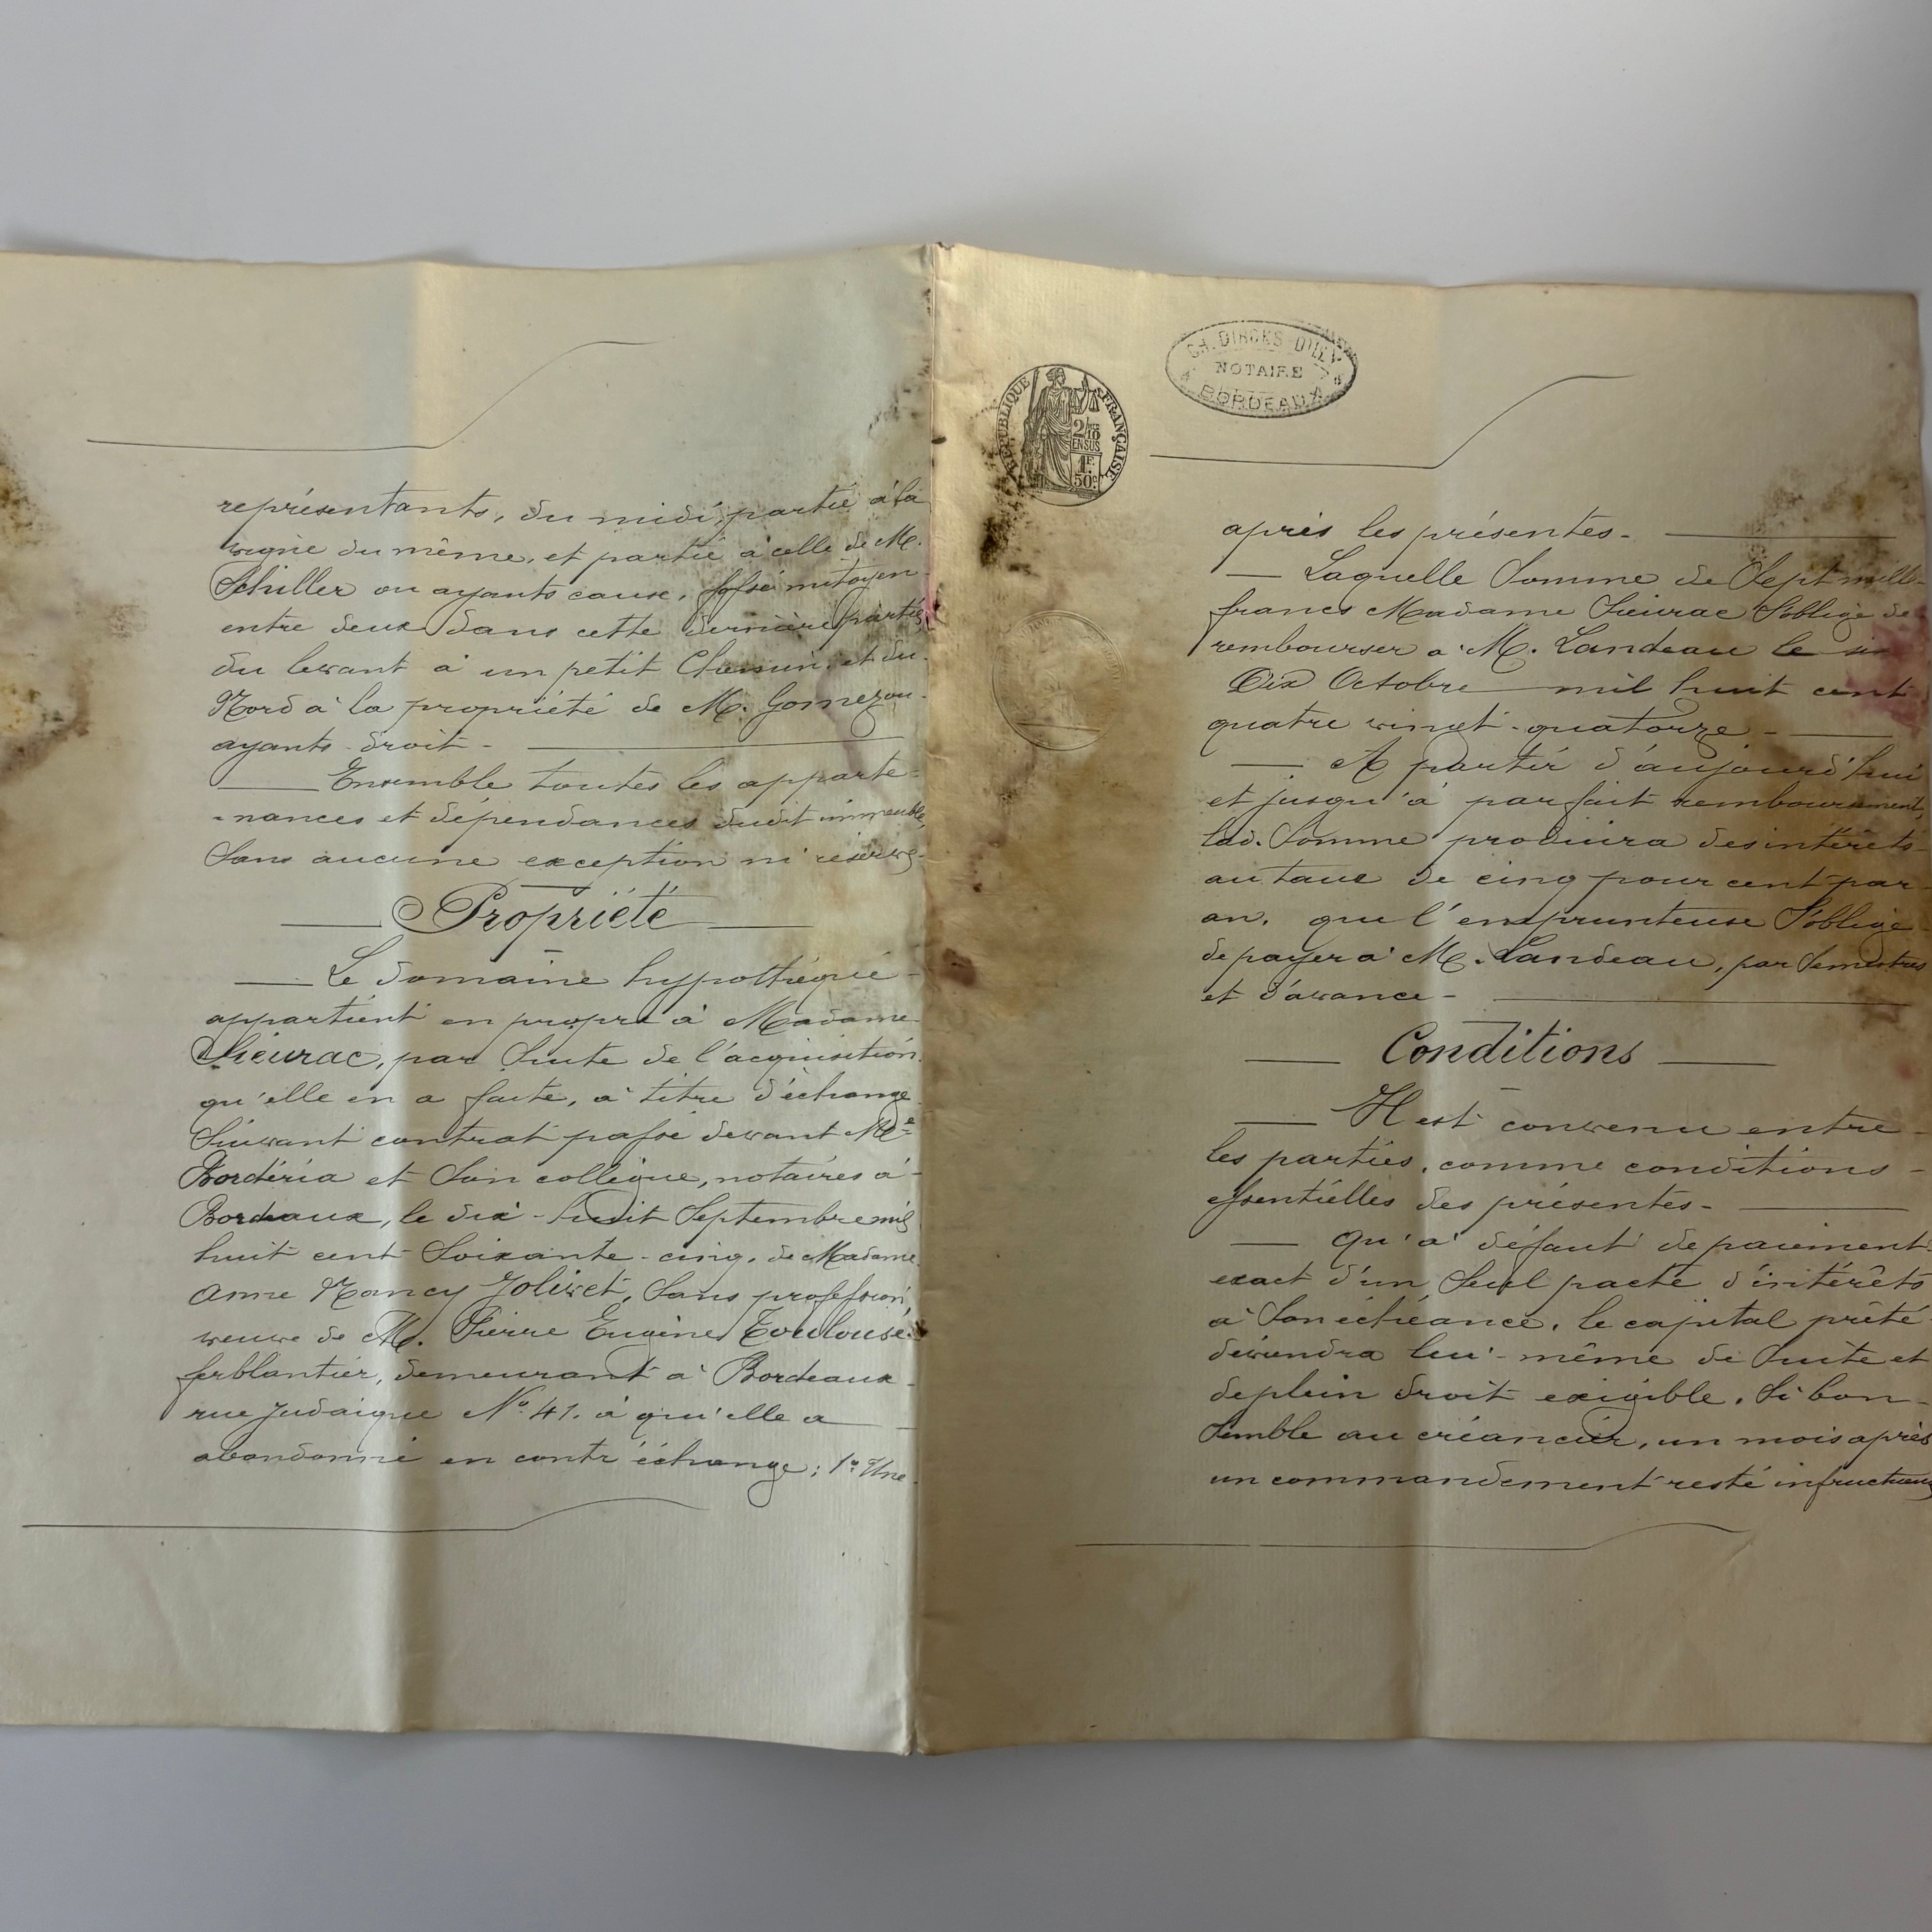 représentants, du midi, partie à la
vigne du même, et partie à celle de M.
Schiller ou ayants cause, fossé mitoyen
entre deux dans cette dernière partie,
du levant à un petit Chemin, et du
Nord à la propriété de M. Gomez ou
ayants droit -
Ensemble toutes les apparte-
-nances et dépendances dudit immeuble,
Sans aucune exception ni réserve-
Propriété
Le domaine hypothéqué
appartient en propre à Madame
Sieurac, par Suite de l'acquisition
qu'elle en a faite, à titre d'échange
Suivant contrat passé devant Me
Bordéria et Son collègue, notaires à
Bordeaux, le dix-huit Septembre mil
huit cent Soixante-cinq, de Madame
Anne Nancy Jolivet, Sans profession,
veuve de M. Pierre Eugène Toulouse
ferblantier, demeurant à Bordeaux
rue Judaïque No. 41. à qu'elle a
abandonné en contr'échange: 1o. Une
RÉPUBLIQUE FRANÇAISE
2/10
EN SUS
1F.
50c.
CH. DIRCKS-DILLY
NOTAIRE
BORDEAUX
après les présentes.
Laquelle Somme de Sept mille
francs Madame Sieurac S'oblige de
rembourser à M. Landeau le
Dix Octobre mil huit cent
quatre vingt-quatorze -
A partir d'aujourd'hui
et jusqu'à parfait remboursement,
lad. Somme produira des intérêts
au taux de cinq pour cent par
an, que l'emprunteuse S'oblige
de payer à M. Landeau, par Semestres
et d'avance -
Conditions
Il est convenu entre
les parties, comme conditions
essentielles des présentes -
Qu'à défaut de paiement
exact d'un Seul pacte d'intérêts
à Son échéance, le capital prêté
deviendra lui-même de Suite et
de plein droit exigible, Si bon
Semble au créancier, un mois après
un commandement resté infructueux